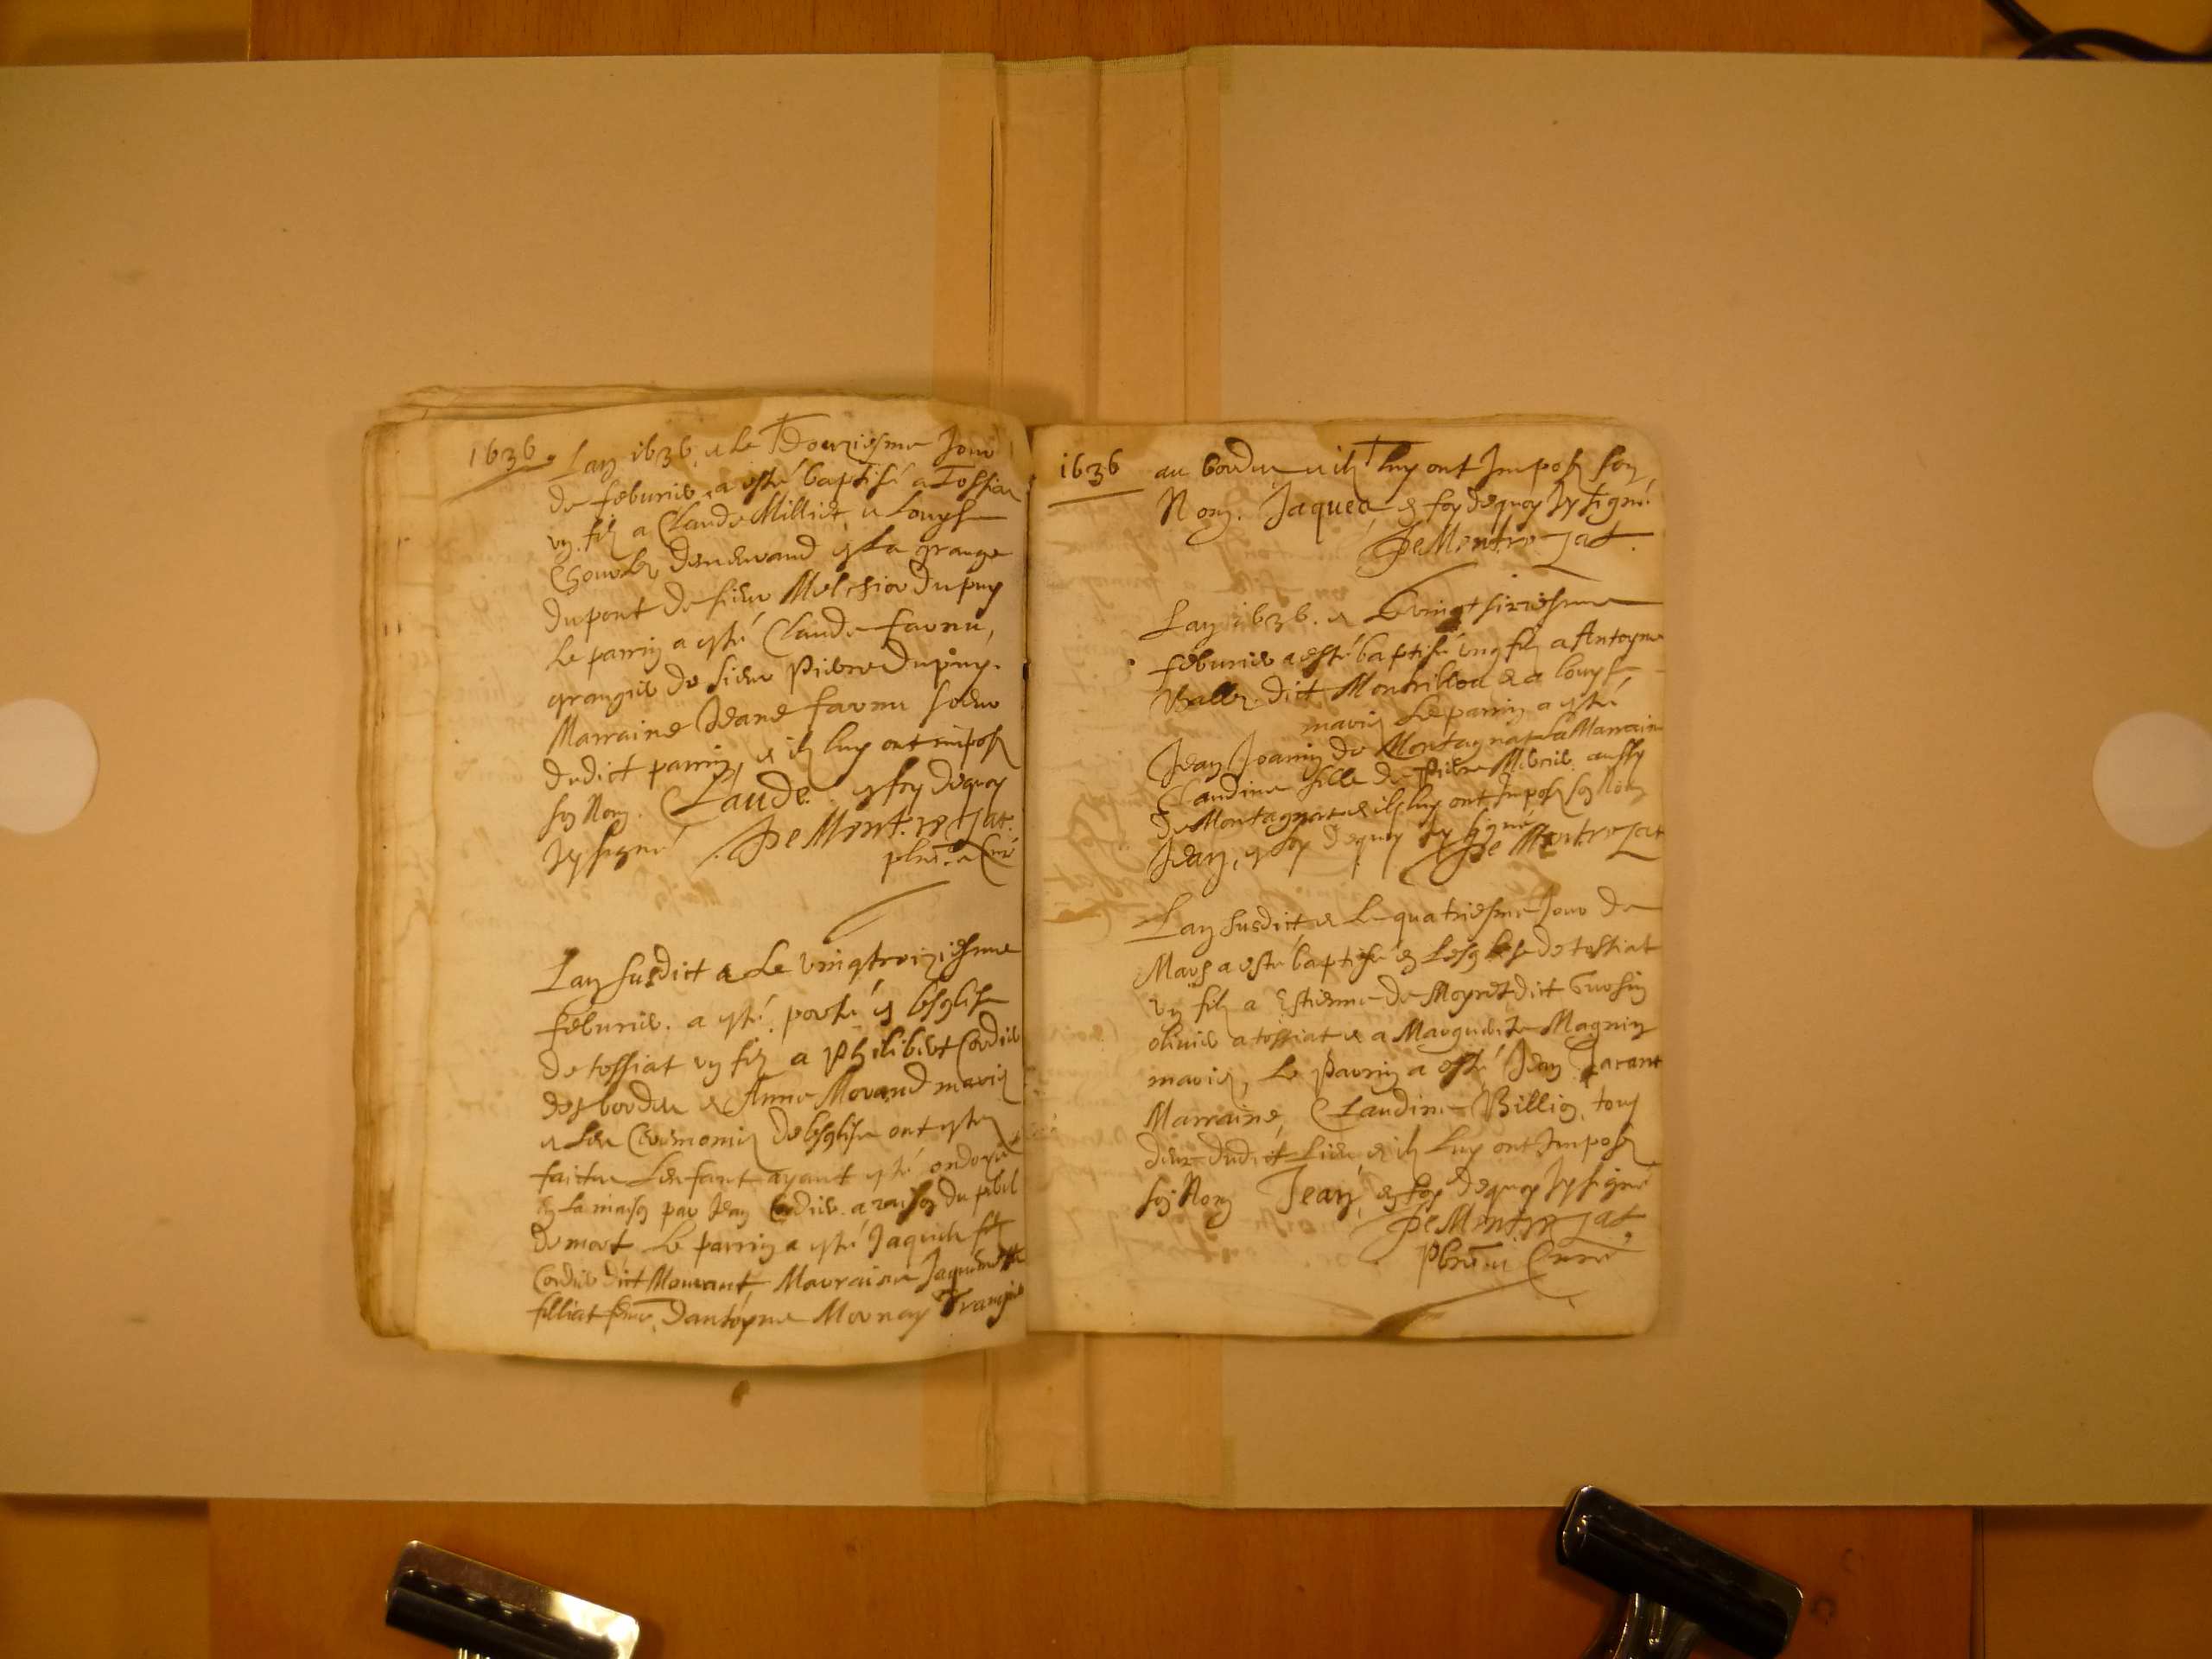 1636. Lan 1636. & Le Douziesme Jour
de feburier a esté baptisé a Tossiat
un filz a Claude Milliet & Louyse
demeurand en La grange
Dupont de sieur Melchior Dupuy
Le parrin a esté Claude favru,
grangier de sieur Pierre Dupuy.
Marraine Jeane favru soeur
dudict parrin, & ilz luy ont imposé
son Nom. Claude. en foy dequoy
Jay signé DeMontrejat.
pbre & Curé
Lan susdict & Le vingttroiziesme
feburier. a esté porté en Lesglise
de tossiat un filz a Philibert Cordier
des bordes & Anne Morand mariez
& Les Ceremonies de Lesglise ont estez
faictes Lenfant ayant esté ondoyé
En La maison par Jean Cordier. a raison du peril
de mort Le parrin a esté Jaques filz
Cordier dict Mourant, Marraine Jaquemette
filliat feme, Dantoyne Mornay Grangier
1636 au bordes & ilz luy ont Imposé son
Nom. Jaques, en foy dequoy Jay signé
DeMontrejat.
Lan 1636. & Le vingt sixiesme
feburier a esté baptisé ung filz a Antoyne
dict Montrillou & a Louyse
mariez Le parrin a esté
Jean Joannin de Montagnat La Marraine
Claudine fille de Pierre Mercier. aussy
de Montagnat & ilz luy ont Imposé son Nom
Jean, en foy dequoy Jay signé DeMontrejat
Lan susdict & Le quatriesme Jour de
Mars a esté baptisé en Lesglise de tossiat
un filz a Estienne de Moyret dict
olivier a tossiat & a Marguerite Magnin
mariez, Le Parrin a esté Jean Jacant
Marraine, Claudine Billion, tous
deux dudict Lieu & ilz Luy ont Imposé
son Nom Jean, en foy dequoy Jay signé
DeMontrejat
Pbre & Curé